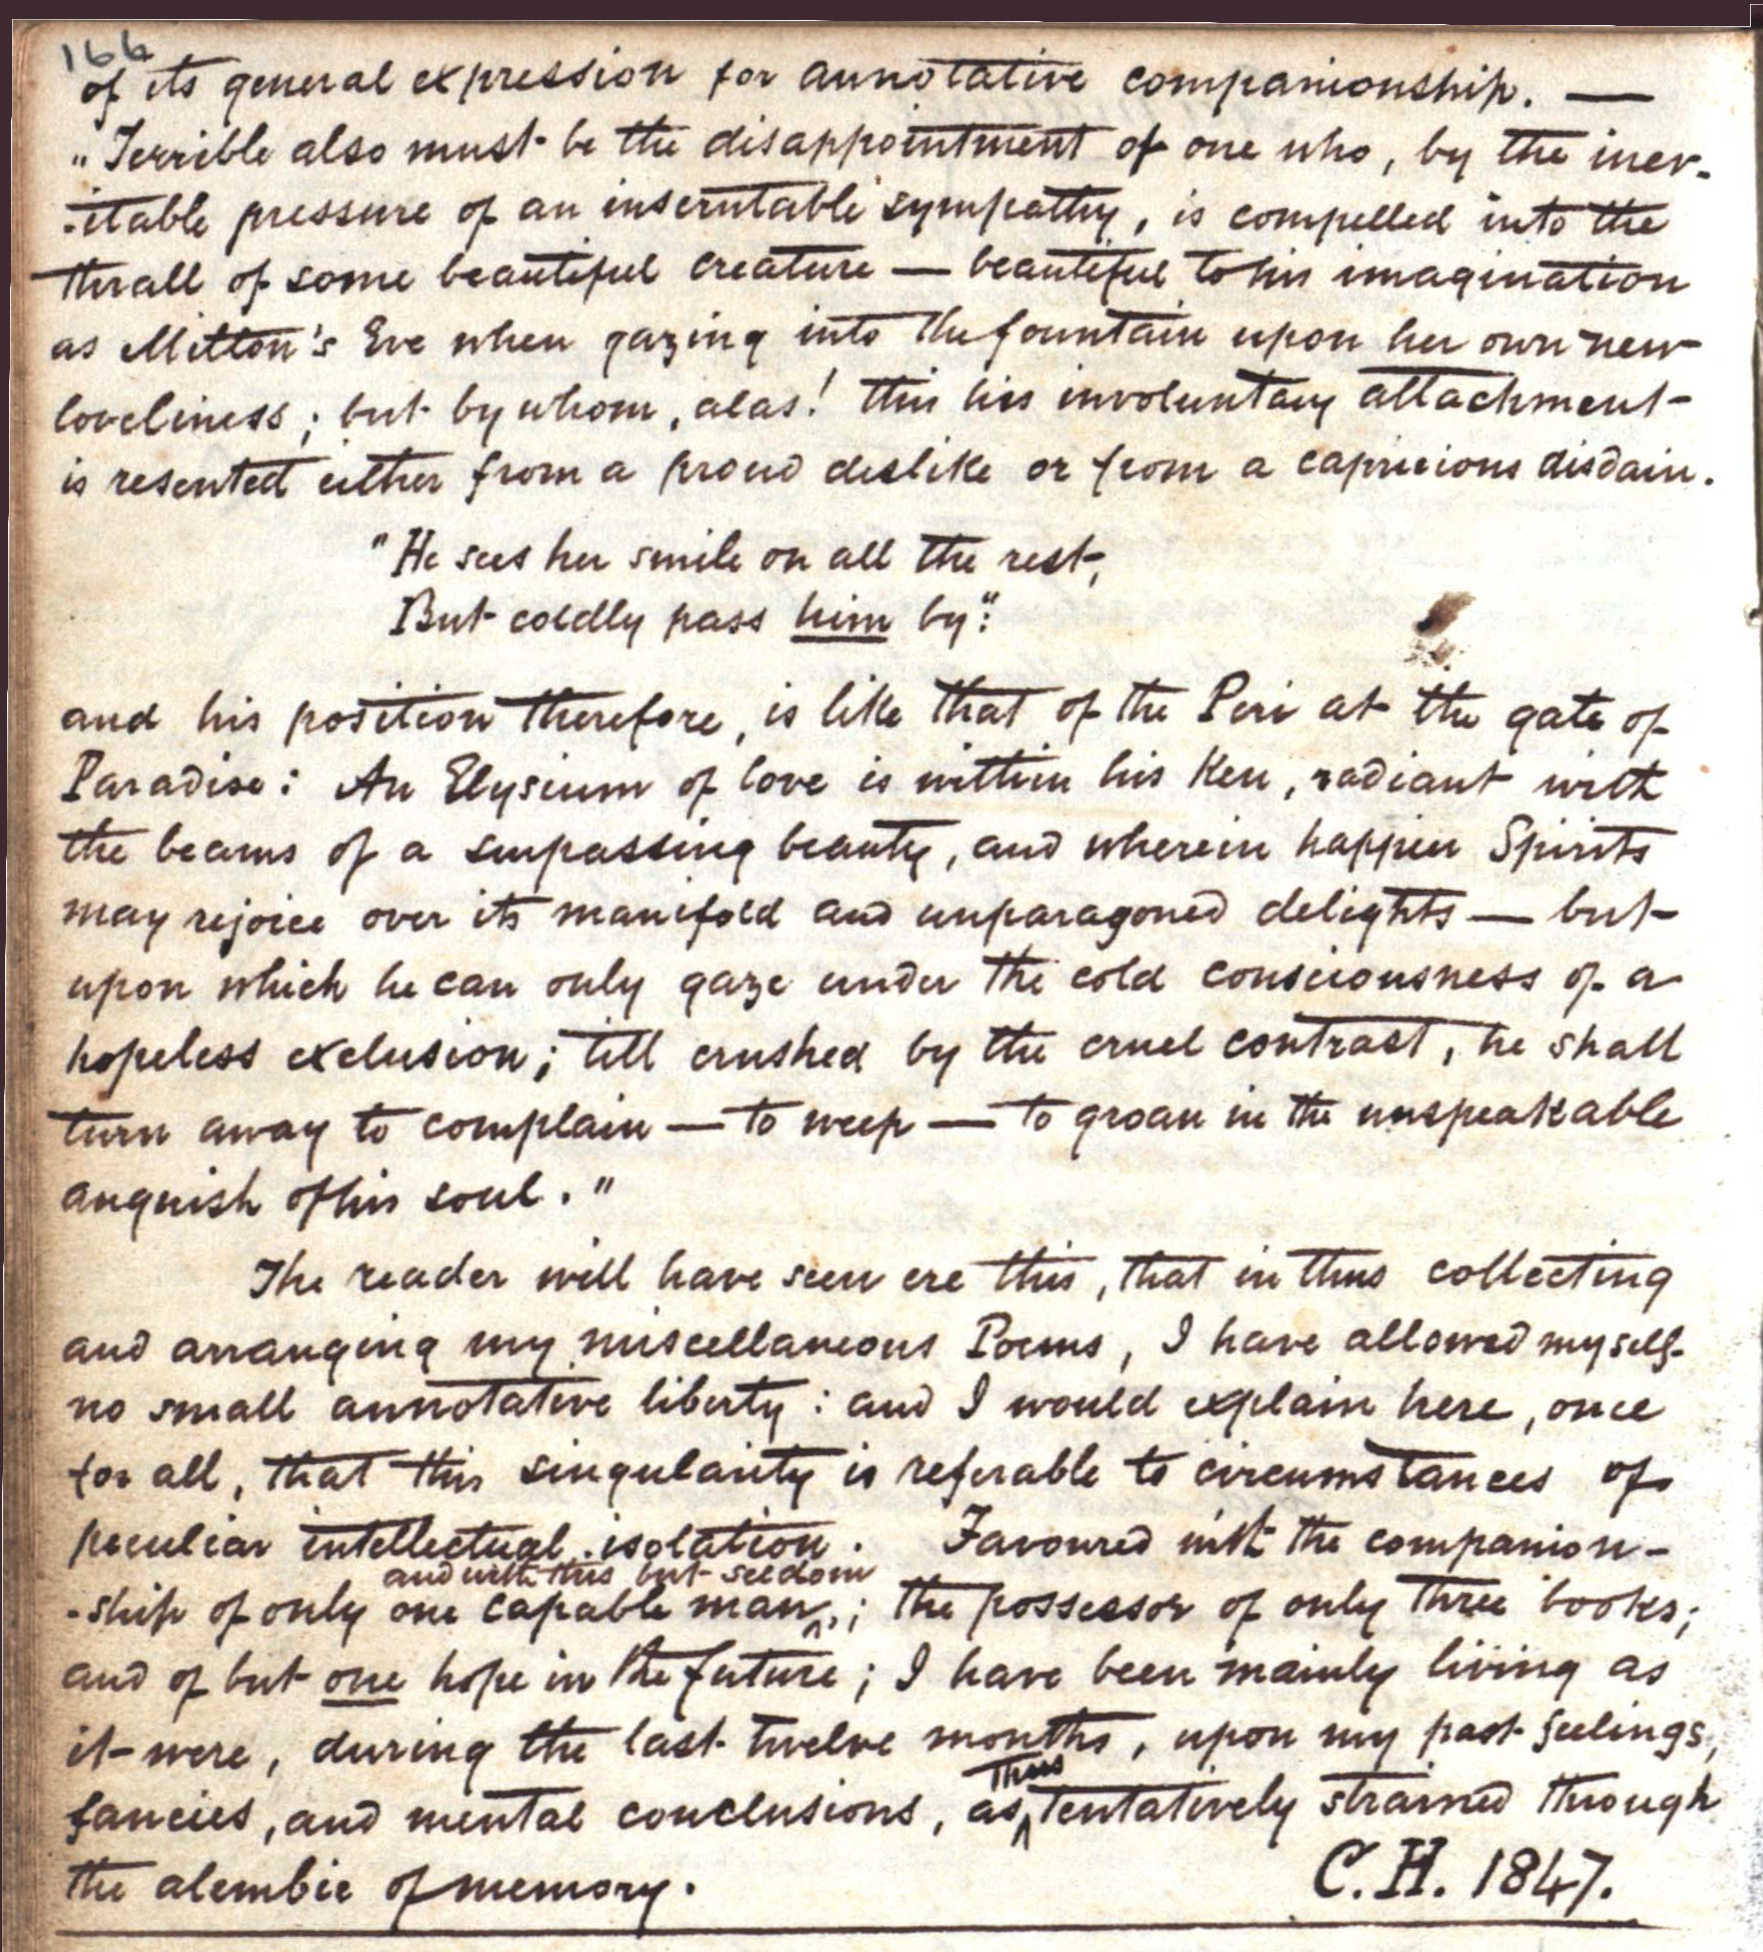 166
of its general expression for annotative companionship. —
"Terrible also must be the disappointment of one who, by the inev-
-itable pressure of an inscrutable sympathy, is compelled into the
thrall of some beautiful creature — beautiful to his imagination
as Milton's Eve when gazing into the fountain upon her own new
loveliness; but by whom, alas! this his involuntary attachment
is resented either from a proud dislike or from a capricious disdain.
"He sees her smile on all the rest,
But coldly pass him by":
and his position therefore, is like that of the Peri at the gate of
Paradise: An Elysium of love is within his Ken, radiant with
the beams of a surpassing beauty, and wherein happier Spirits
may rejoice over its manifold and unparagoned delights — but
upon which he can only gaze under the cold consciousness of a
hopeless exclusion; till crushed by the cruel contrast, he shall
turn away to complain — to weep — to groan in the unspeakable
anguish of his soul."
The reader will have seen ere this, that in thus collecting
and arranging my miscellaneous Poems, I have allowed myself
no small annotative liberty: and I would explain here, once
for all, that this singularity is referable to circumstances of
peculiar intellectual isolation. Favoured with the companion-
and with this but seldom
-ship of only one capable man,^; the possessor of only three books;
and of but one hope in the future; I have been mainly living as
it were, during the last twelve months, upon my past feelings,
thus
fancies, and mental conclusions, as ^ tentatively strained through
the alembic of memory.
C.H. 1847.